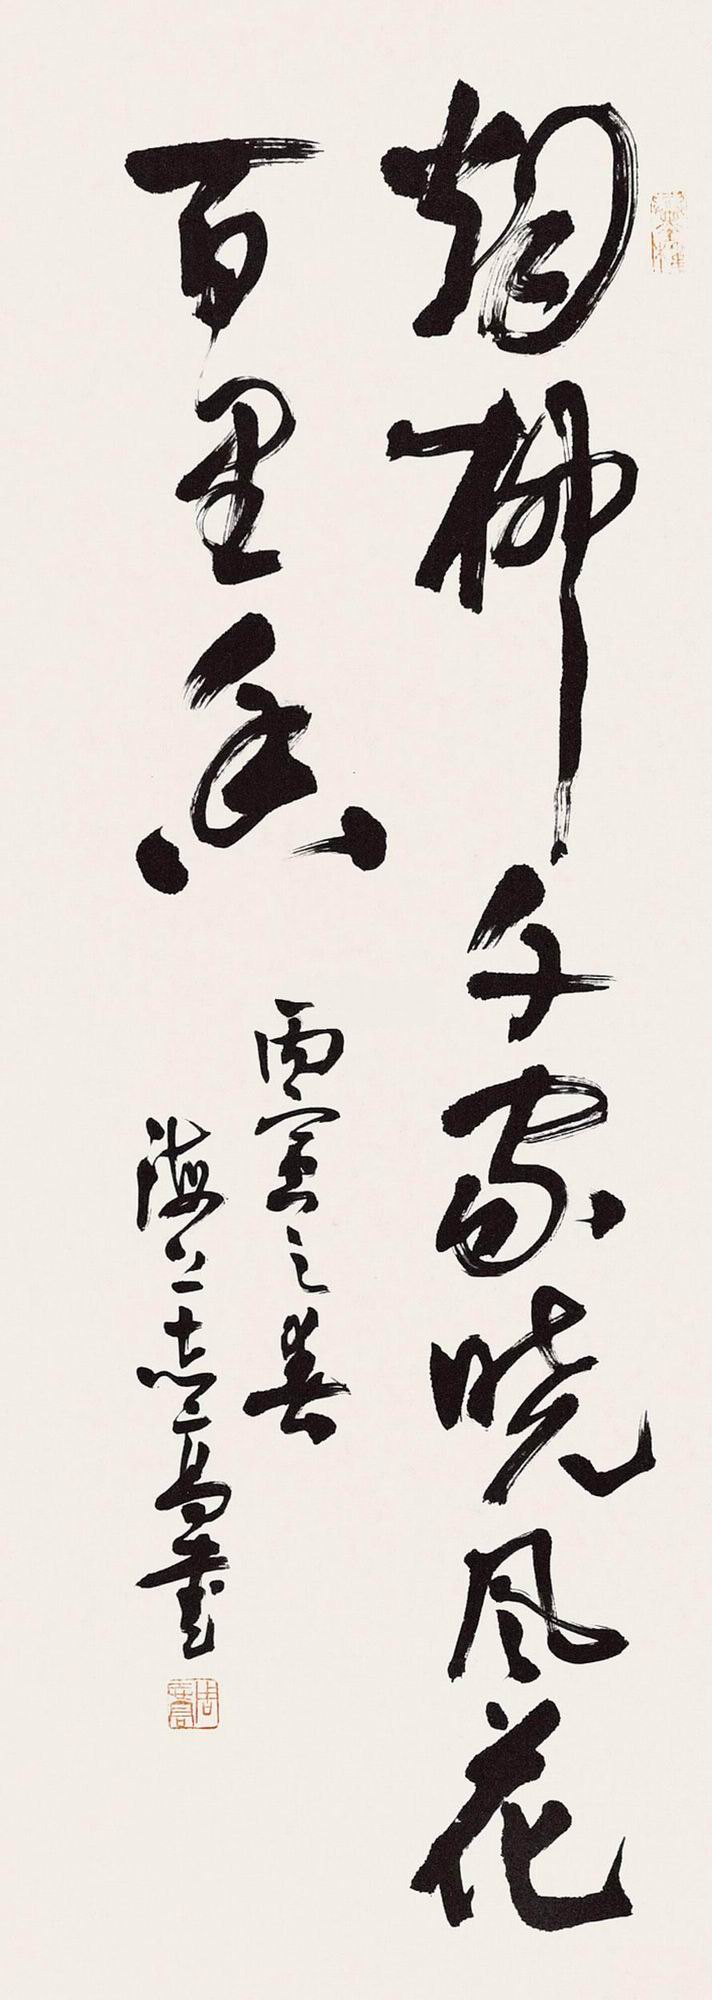 烟柳千家晓风花
百里香
丙寅之春
海上志高书
周志高